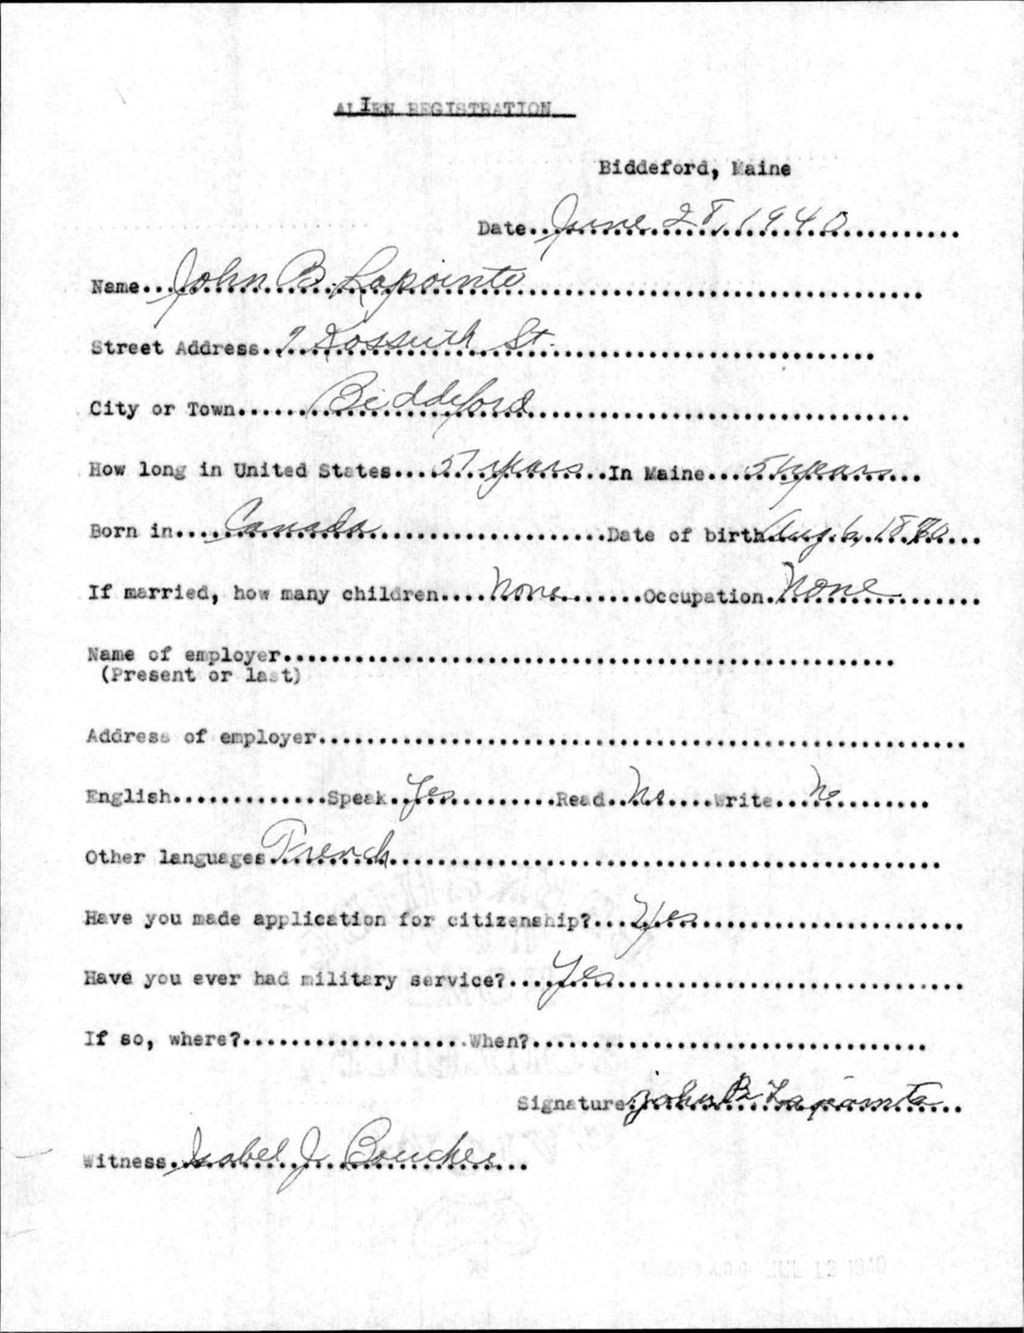 ALIEN REGISTRATION
Biddeford, Maine
Date June 28, 1940
Name John B. Lapointe
Street Address 9 Kossuth St.
City or Town Biddeford
How long in United States 57 years In Maine years
Born in Canada Date of birth Aug 6, 1870
If married, how many children None Occupation None
Name of employer
(Present or last)
Address of employer
English Speak Yes Read No Write No
Other languages French
Have you made application for citizenship? Yes
Have you ever had military service? Yes
If so, where? When?
Signature John B Lapointe
Witness Isabel J. Boucher
JUL 12 1940